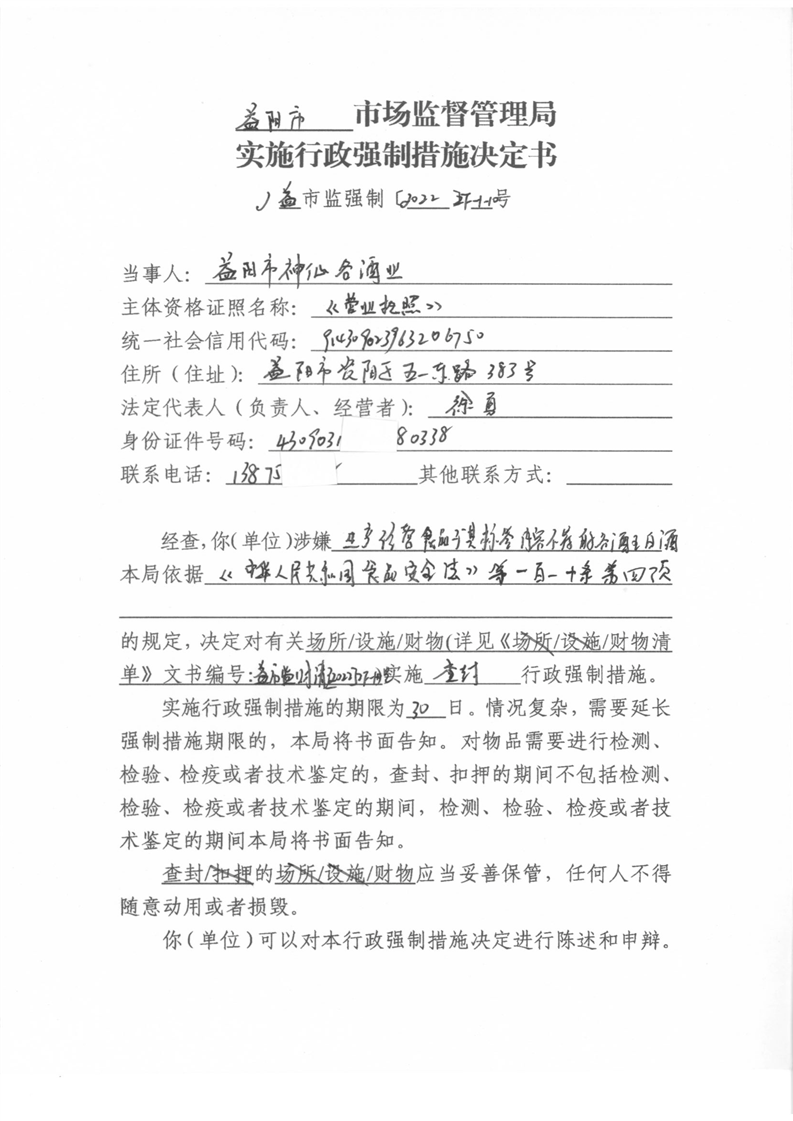 益阳市 市场监督管理局
实施行政强制措施决定书
益市监强制〔2022
号
当事人：益阳市神仙谷酒业
主体资格证照名称：《营业执照》
统一社会信用代码：914309023963206750
住所（住址）：益阳市资阳区五一东路383号
法定代表人（负责人、经营者）：徐勇
身份证件号码：4309031 80338
联系电话：13875 其他联系方式：
经查，你(单位)涉嫌 生产经营食品 与其标签内容不符的 酒
本局依据《中华人民共和国食品安全法》第一百一十条第四项
的规定，决定对有关场所/设施/财物(详见《场所/设施/财物清
单》文书编号: 实施 查封 行政强制措施。
实施行政强制措施的期限为30日。情况复杂，需要延长
强制措施期限的，本局将书面告知。对物品需要进行检测、
检验、检疫或者技术鉴定的，查封、扣押的期间不包括检测、
检验、检疫或者技术鉴定的期间，检测、检验、检疫或者技
术鉴定的期间本局将书面告知。
查封/扣押的场所/设施/财物应当妥善保管，任何人不得
随意动用或者损毁。
你(单位)可以对本行政强制措施决定进行陈述和申辩。